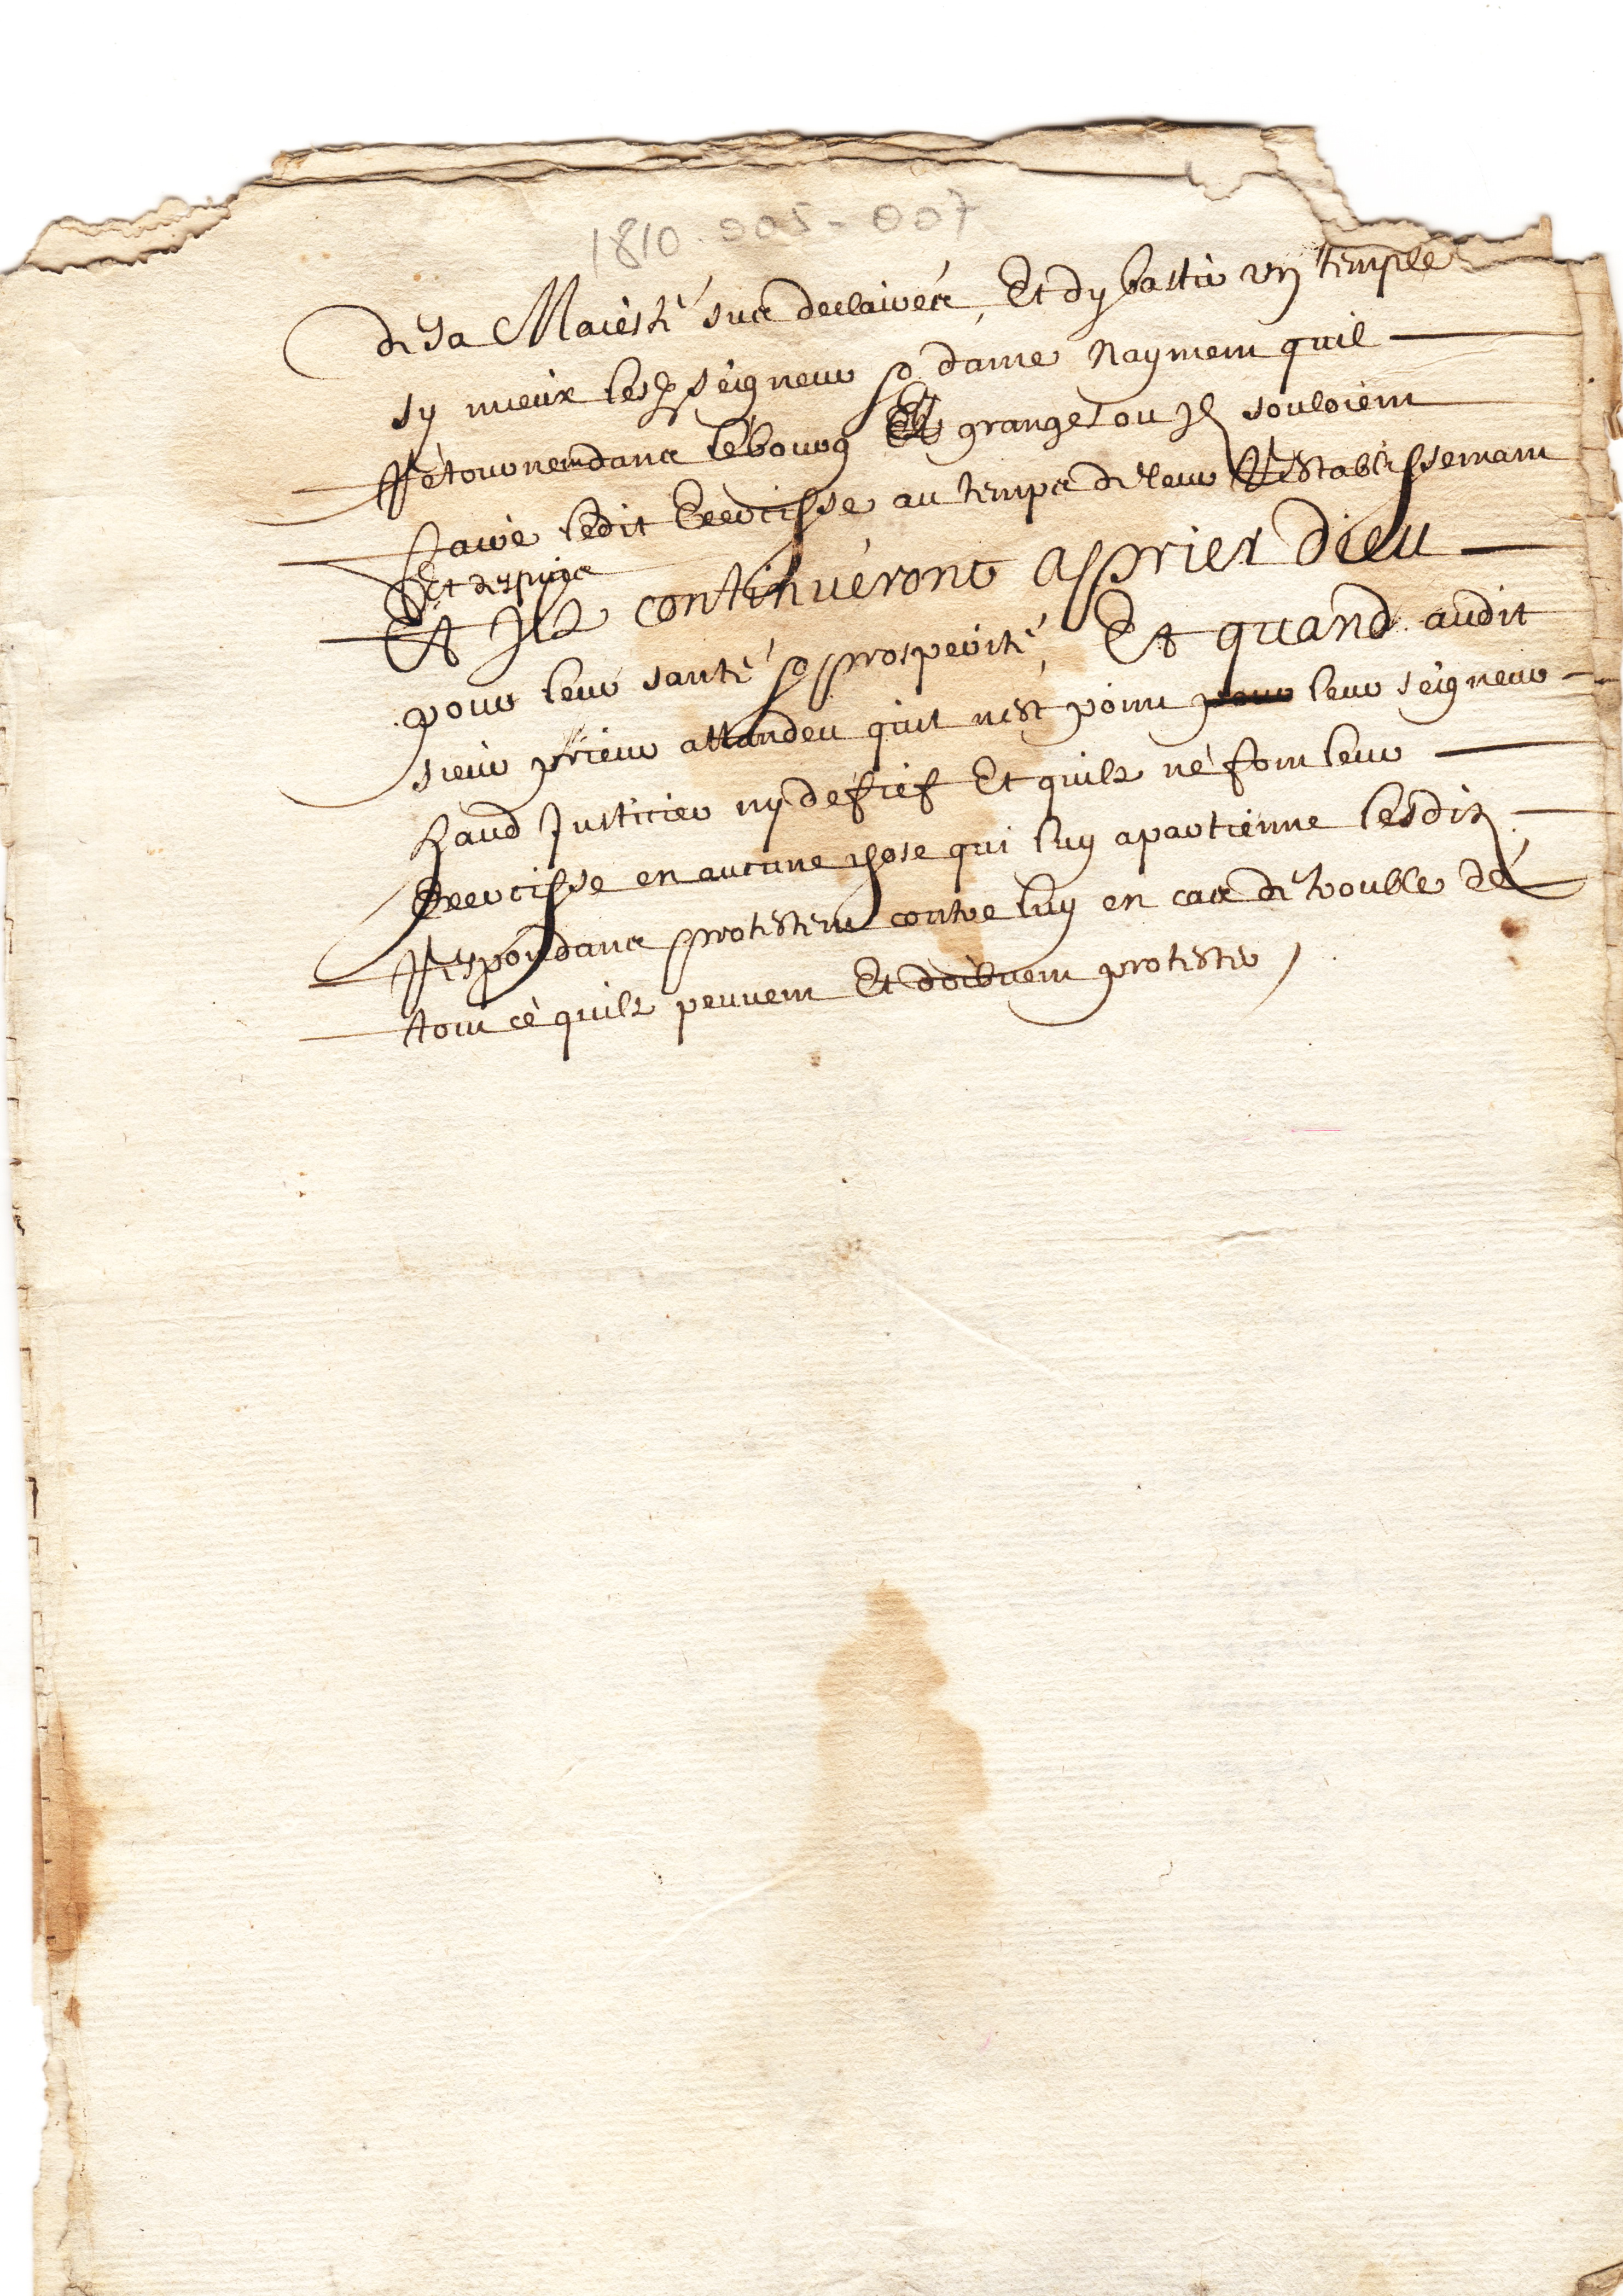 1810-005-007
de sa Maiesté sus declairée, Et dy bastir un temple
sy mieux lesd seigneur & dame naymen quil
Retournen dans le bourg Et granges ou Jl souloient
faire ledit Exercisse au temps de leur Restablissemant
Et despuis
Et Jls continueront a prier Dieu
pour leur santé & prosperité, Et quand audit
sieur prieur attandeu quil nest poinct leur seigneur
haud Justicier ny de fief Et quils ne font leur
Exercisse en aucune chose qui luy apartienne lesdits
Respondans protesten contre luy en cas de trouble de
tout ce quils peuven Et doibuen protester /